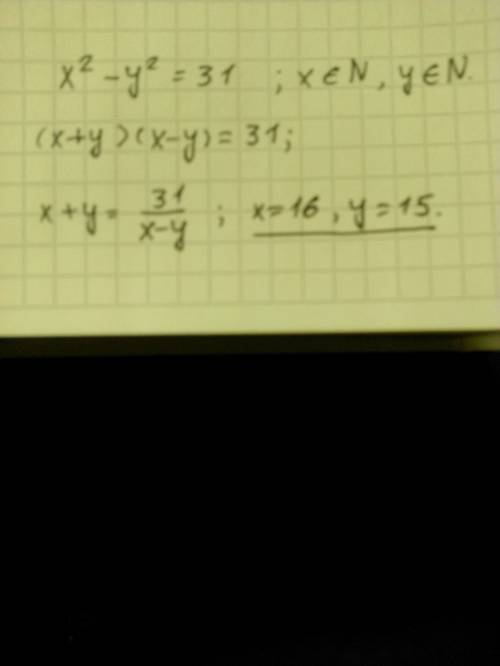 x² - y² = 31 ; x ∈ N, y ∈ N.
(x+y)(x-y) = 31;
x + y = 31/(x-y) ; x=16, y=15.